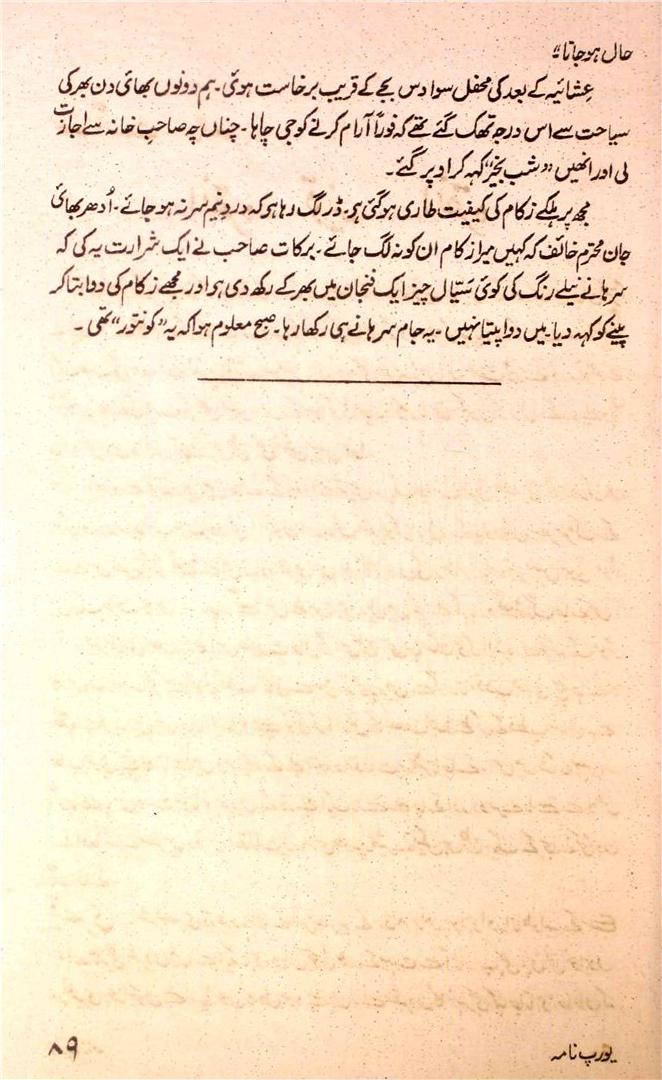 حال ہوجاتا“
عشائیہ کے بعد کی محفل سوا دس بجے کے قریب برخاست ہوئی۔ ہم دونوں بھائی دن بھر کی
سیاحت سے اس درجہ تھک گئے تھے کہ فوراً آرام کرنے کو جی چاہا۔ چناں چہ صاحبِ خانہ سے اجازت
لی اور انھیں ”شب بخیر“ کہہ کر اوپر گئے۔
مجھ پر ہلکے زکام کی کیفیت طاری ہوگئی ہو۔ ڈر لگ رہا ہو کہ دردِ نیم سر نہ ہو جائے۔ اُدھر بھائی
جان محترم خائف کہ کہیں میرا زکام ان کو نہ لگ جائے۔ برکات صاحب نے ایک شرارت یہ کی کہ
سرہانے نیلے رنگ کی کوئی سیّال چیز ایک فنجان میں بھر کے رکھ دی ہو اور مجھے زکام کی دوا بتا کر
پینے کو کہہ دیا۔ میں دوا پیتا نہیں۔ یہ جام سرہانے ہی رکھا رہا۔ صبح معلوم ہوا کہ یہ ”کونتور“ تھی۔
یورپ نامہ
۸۹